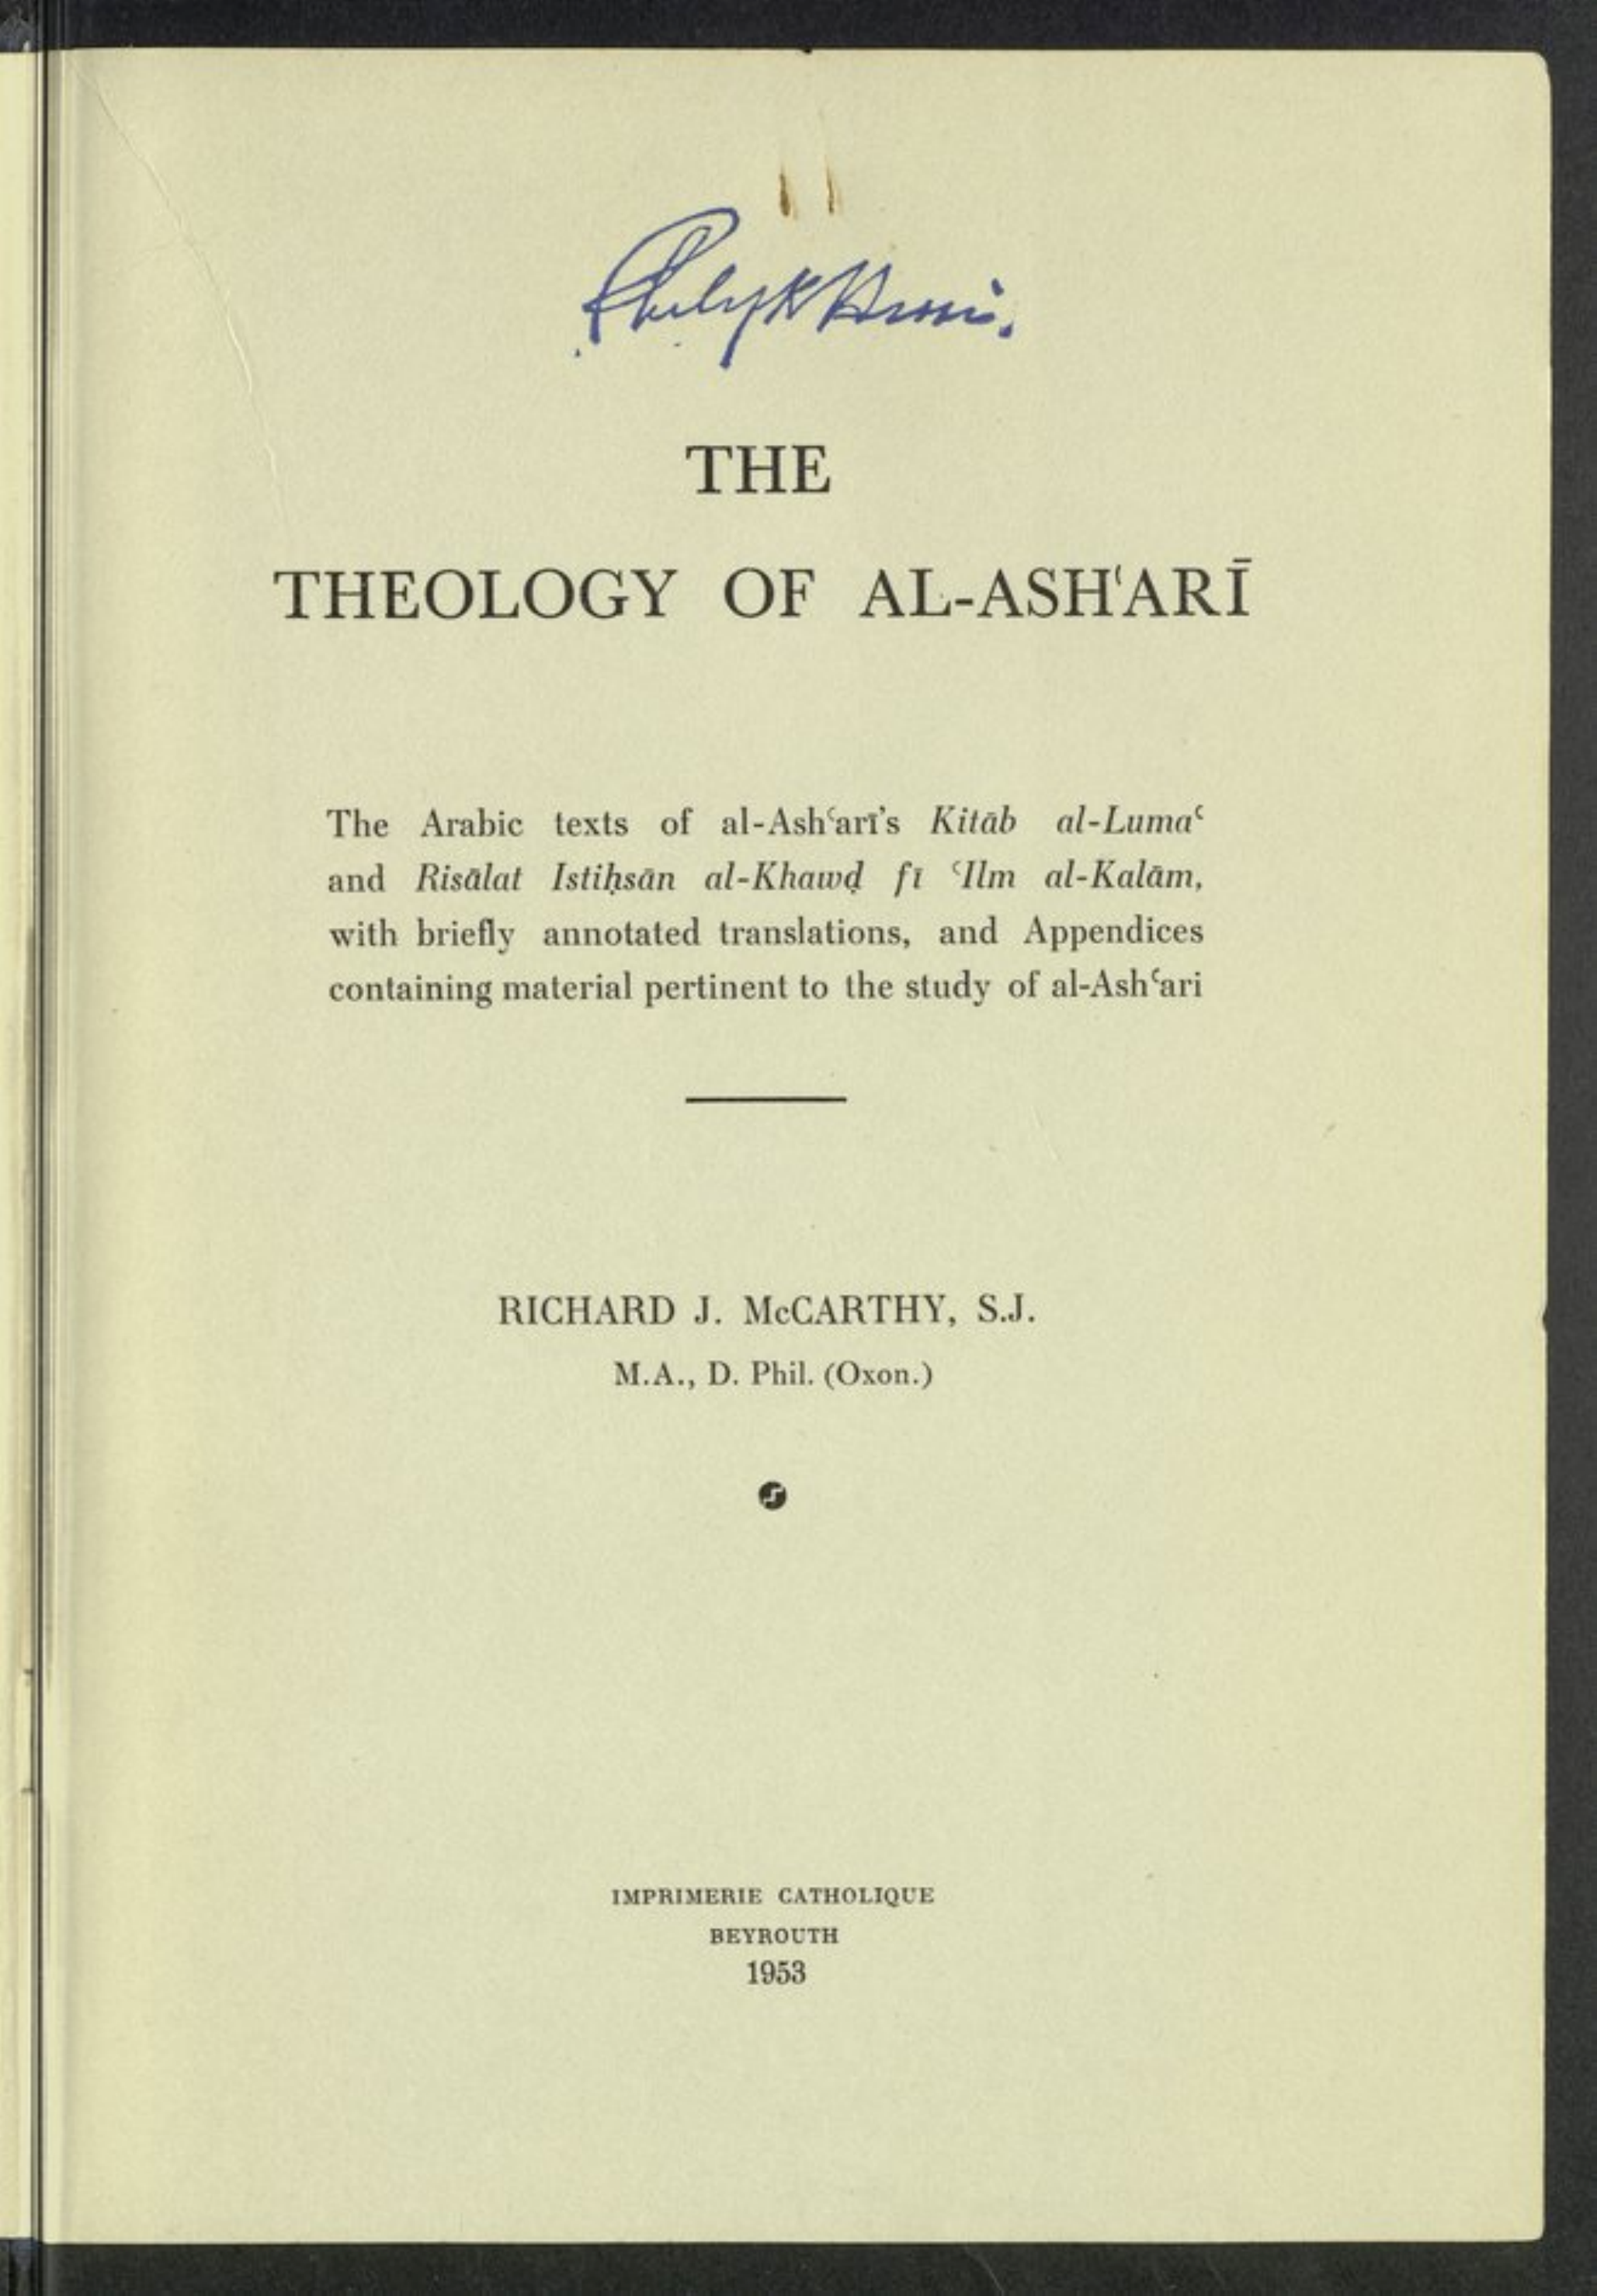 THE
THEOLOGY OF AL-ASHʿARĪ
The Arabic texts of al-Ashʿarī's Kitāb al-Lumaʿ
and Risālat Istiḥsān al-Khawḍ fī ʿIlm al-Kalām,
with briefly annotated translations, and Appendices
containing material pertinent to the study of al-Ashʿari
RICHARD J. McCARTHY, S.J.
M.A., D. Phil. (Oxon.)
IMPRIMERIE CATHOLIQUE
BEYROUTH
1953